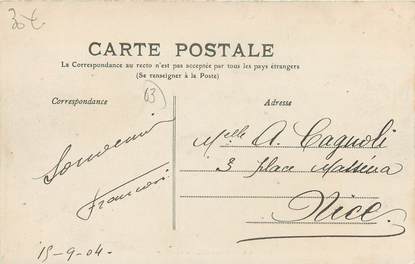 30€
CARTE POSTALE
La Correspondance au recto n'est pas acceptée par tous les pays étrangers
(Se renseigner à la Poste)
Correspondance
13
Adresse
Souvenir
Francois
15-9-04.
Melle A. Cagnoli
3 place Masséna
Nice